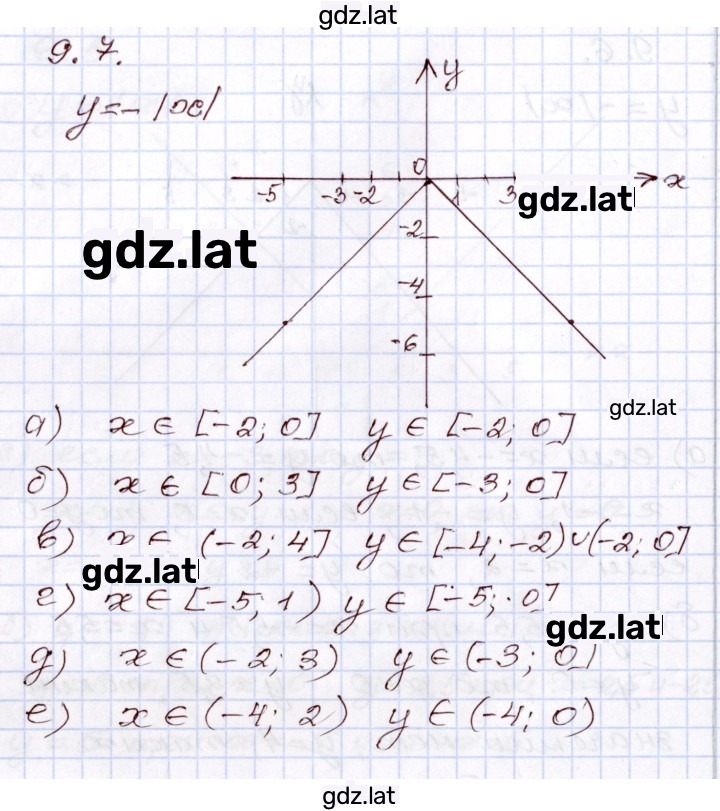 gdz.lat
9.7.
y = - |x|
y
0
-5 -3 -2 1 3 x
gdz.lat
-2
gdz.lat
-4
-6
gdz.lat
а) x ∈ [-2; 0] y ∈ [-2; 0]
б) x ∈ [0; 3] y ∈ [-3; 0]
в) x ∈ (-2; 4] y ∈ [-4; -2) ∪ (-2; 0]
gdz.lat
г) x ∈ [-5; 1) y ∈ [-5; 0]
gdz.lat
д) x ∈ (-2; 3) y ∈ (-3; 0]
е) x ∈ (-4; 2) y ∈ (-4; 0)
gdz.lat